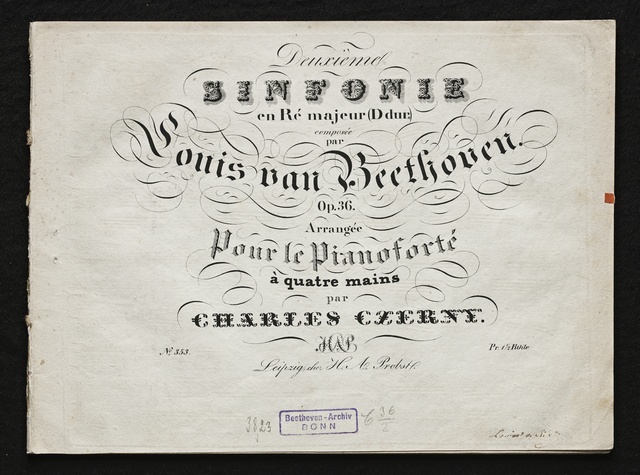 Deuxième
SINFONIE
en Ré majeur (D dur)
composée
par
Louis van Beethoven.
Op. 36.
Arrangée
Pour le Pianoforté
à quatre mains
par
CHARLES CZERNY.
HAP
No. 353. Pr. 1½ Rthlr
Leipzig, chez H. A. Probst.
3823 Beethoven-Archiv C 36/2
BONN